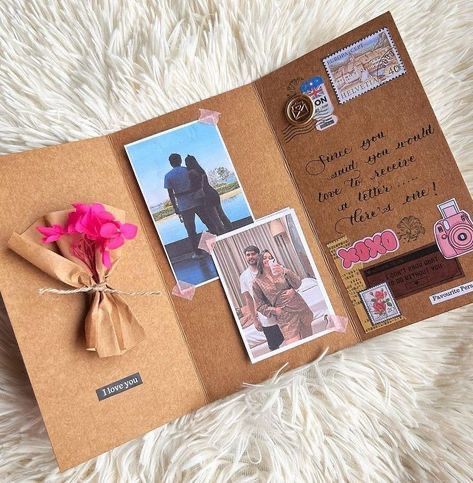 I love you
HELVETIA 40
ON
Since you
said you would
love to receive
a letter.....
here's one!
XOXO
I DON'T KNOW WHAT
I'D DO WITHOUT YOU
Favourite Pers